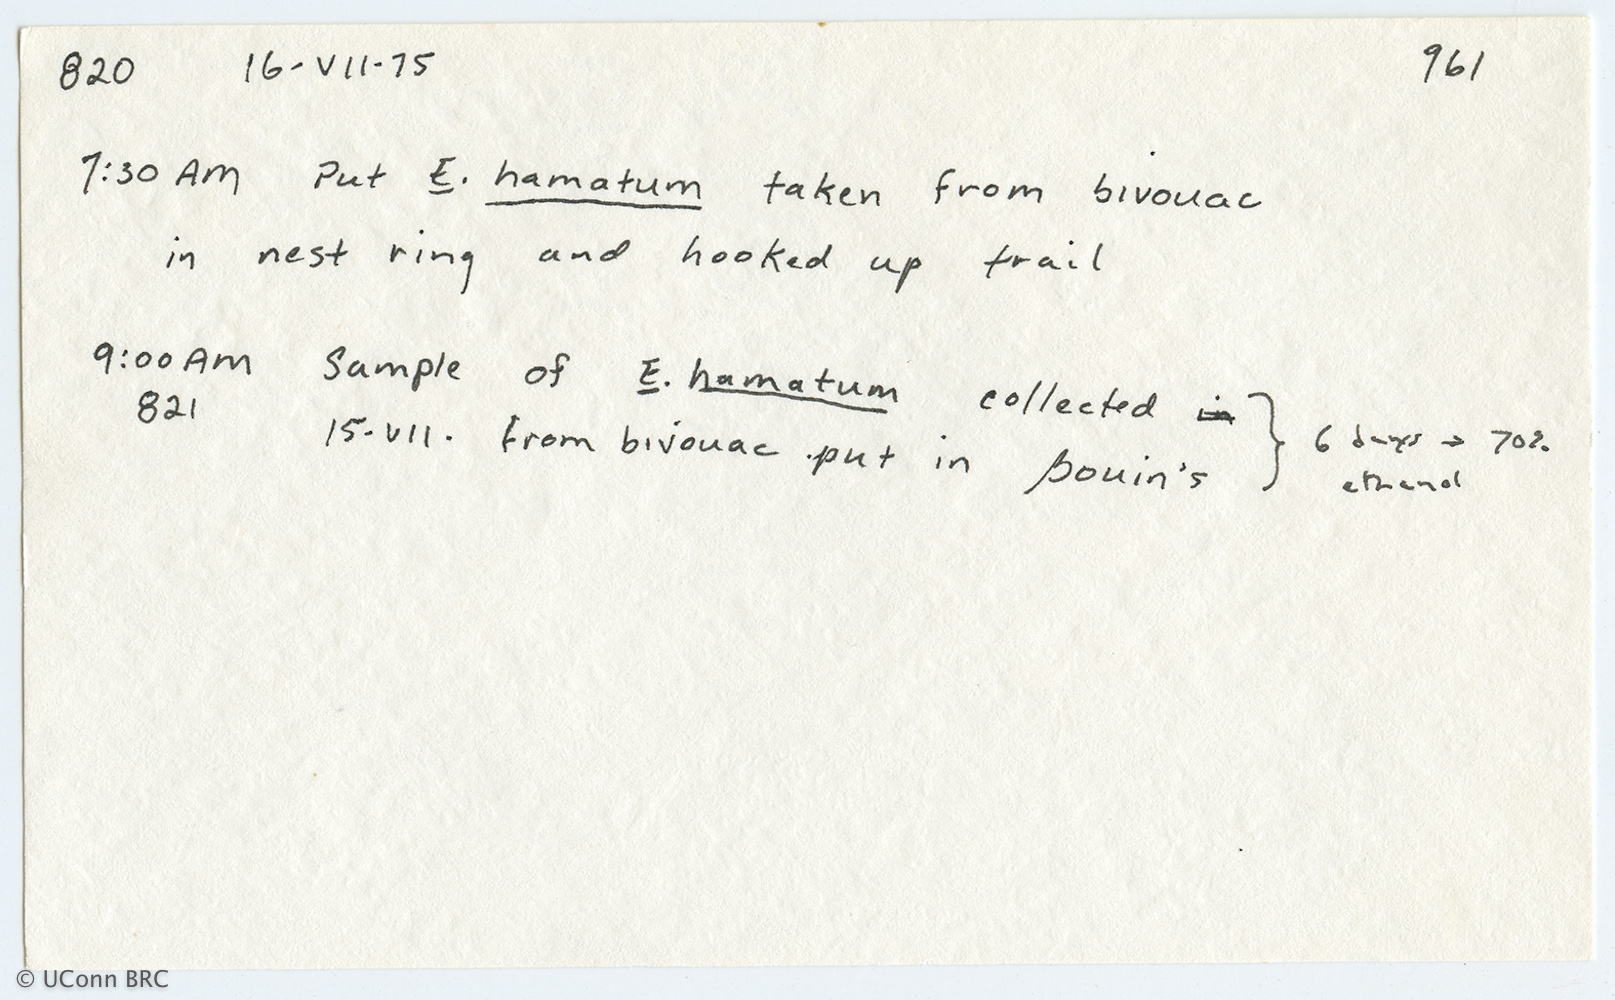 820 16-VII-75 961
7:30 AM Put E. hamatum taken from bivouac
in nest ring and hooked up trail
9:00 AM Sample of E. hamatum collected in
821 15-VII. from bivouac put in Bouin's
6 days → 70%
ethanol
© UConn BRC